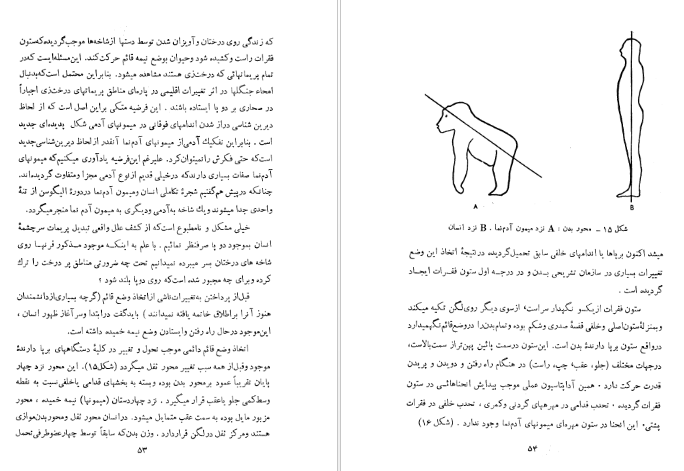 که زندگی روی درختان و آویزان شدن توسط دستها از شاخه‌ها موجب گردیده که ستون
فقرات راست و کشیده شود و حیوان بوضع نیمه قائم حرکت کند. این مسئله ایست که در
تمام پریماتهائی که درخت زی هستند مشاهده میشود. بنابراین محتمل است که بدنبال
امحاء جنگلها در اثر تغییرات اقلیمی در پاره‌ای مناطق پریماتهای درخت زی اجباراً
در صحاری بر دو پا ایستاده باشند. این فرضیه متکی بر این اصل است که از لحاظ
دیرین شناسی دراز شدن اندامهای فوقانی در میمونهای آدمی شکل پدیده‌ای جدید
است. بنابراین تفکیک آدمی از میمونهای آدم‌نما آنقدر از لحاظ دیرین شناسی جدید
است که حتی فکرش را نمیتوان کرد. علیرغم این فرضیه یادآوری میکنیم که میمونهای
آدم‌نما صفات بسیاری دارند که در خیلی قدیم از نوع آدمی مجزا و متفاوت گردیده‌اند.
چنانکه در پیش هم گفتیم شجرهٔ تکاملی انسان و میمون آدم‌نما در دورهٔ الیگوسن از تنهٔ
واحدی جدا میشوند و یك شاخه به آدمی و دیگری به میمون آدم نما منجر میگردد.
خیلی مشکل و نامطبوع است که از کشف علل واقعی تبدیل پریمات سرچشمهٔ
انسان به موجود دو پا صرفنظر نمائیم. با علم به اینکه موجود مذکور قرنها روی
شاخه های درختان بسر میبرده نمیدانیم تحت چه ضرورتی مناطق پر درخت را ترك
کرده و برای چه مجبور شده است که روی دو پا بلند شود؟
قبل از پرداختن به تغییرات ناشی از اتخاذ وضع قائم (گرچه بسیاری از دانشمندان
هنوز آنرا بر اطلاق خاتمه یافته نمیدانند) باید گفت در ابتدا و سرآغاز ظهور انسان،
این موجود در حال راه رفتن و ایستادن وضع نیمه خمیده داشته است.
اتخاذ وضع قائم دائمی موجب تحول و تغییر در کلیهٔ دستگاههای برپا دارندهٔ
موجود و قبل از همه سبب تغییر محور ثقل میگردد (شکل ۱۵). این محور نزد چهار
پایان تقریباً عمود بر محور بدن بوده و بسته به بخشهای قدامی یا خلفی نسبت به نقطه
وسط کمی جلو یا عقب قرار میگیرد. نزد چهار دستان (میمونها) نیمه خمیده، محور
مزبور مایل بوده به سمت عقب متمایل میشود. در انسان محور ثقل و محور بدن موازی
هستند و مرکز ثقل در لگن قرار دارد. وزن بدن که سابقاً توسط چهار عضو طرفی تحمل
۵۳
A
B
شکل ۱۵ - محور بدن: A نزد میمون آدم‌نما. B نزد انسان
میشد اکنون برپاها یا اندامهای خلفی سابق تحمیل گردیده در نتیجهٔ اتخاذ این وضع
تغییرات بسیاری در سازمان تشریحی بدن و در درجه اول ستون فقرات ایجاد
گردیده است.
ستون فقرات از یکسو نگهدار سر است؛ از سوی دیگر روی لگن تکیه میکند
و بمنزلهٔ ستون اصلی و خلفی قفسهٔ صدری و شکم بوده و تمام بدن را در وضع قائم نگهمیدارد
در واقع ستون برپا دارندهٔ بدن است. این ستون در سمت پائین پهن‌تر از سمت بالاست،
در جهات مختلف (جلو، عقب؛ چپ، راست) در هنگام راه رفتن و دویدن و پریدن
قدرت حرکت دارد. همین آداپتاسیون عملی موجب پیدایش انحناهائی در ستون
فقرات گردیده. تحدب قدامی در مهره‌های گردنی و کمری، تحدب خلفی در فقرات
پشتی. این انحنا در ستون مهره‌ای میمونهای آدم‌نما وجود ندارد. (شکل ۱۶)
۵۴